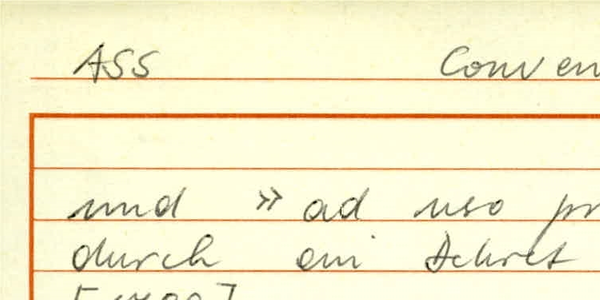 ASS Conven
und » ad uso pr
durch ein Dekret